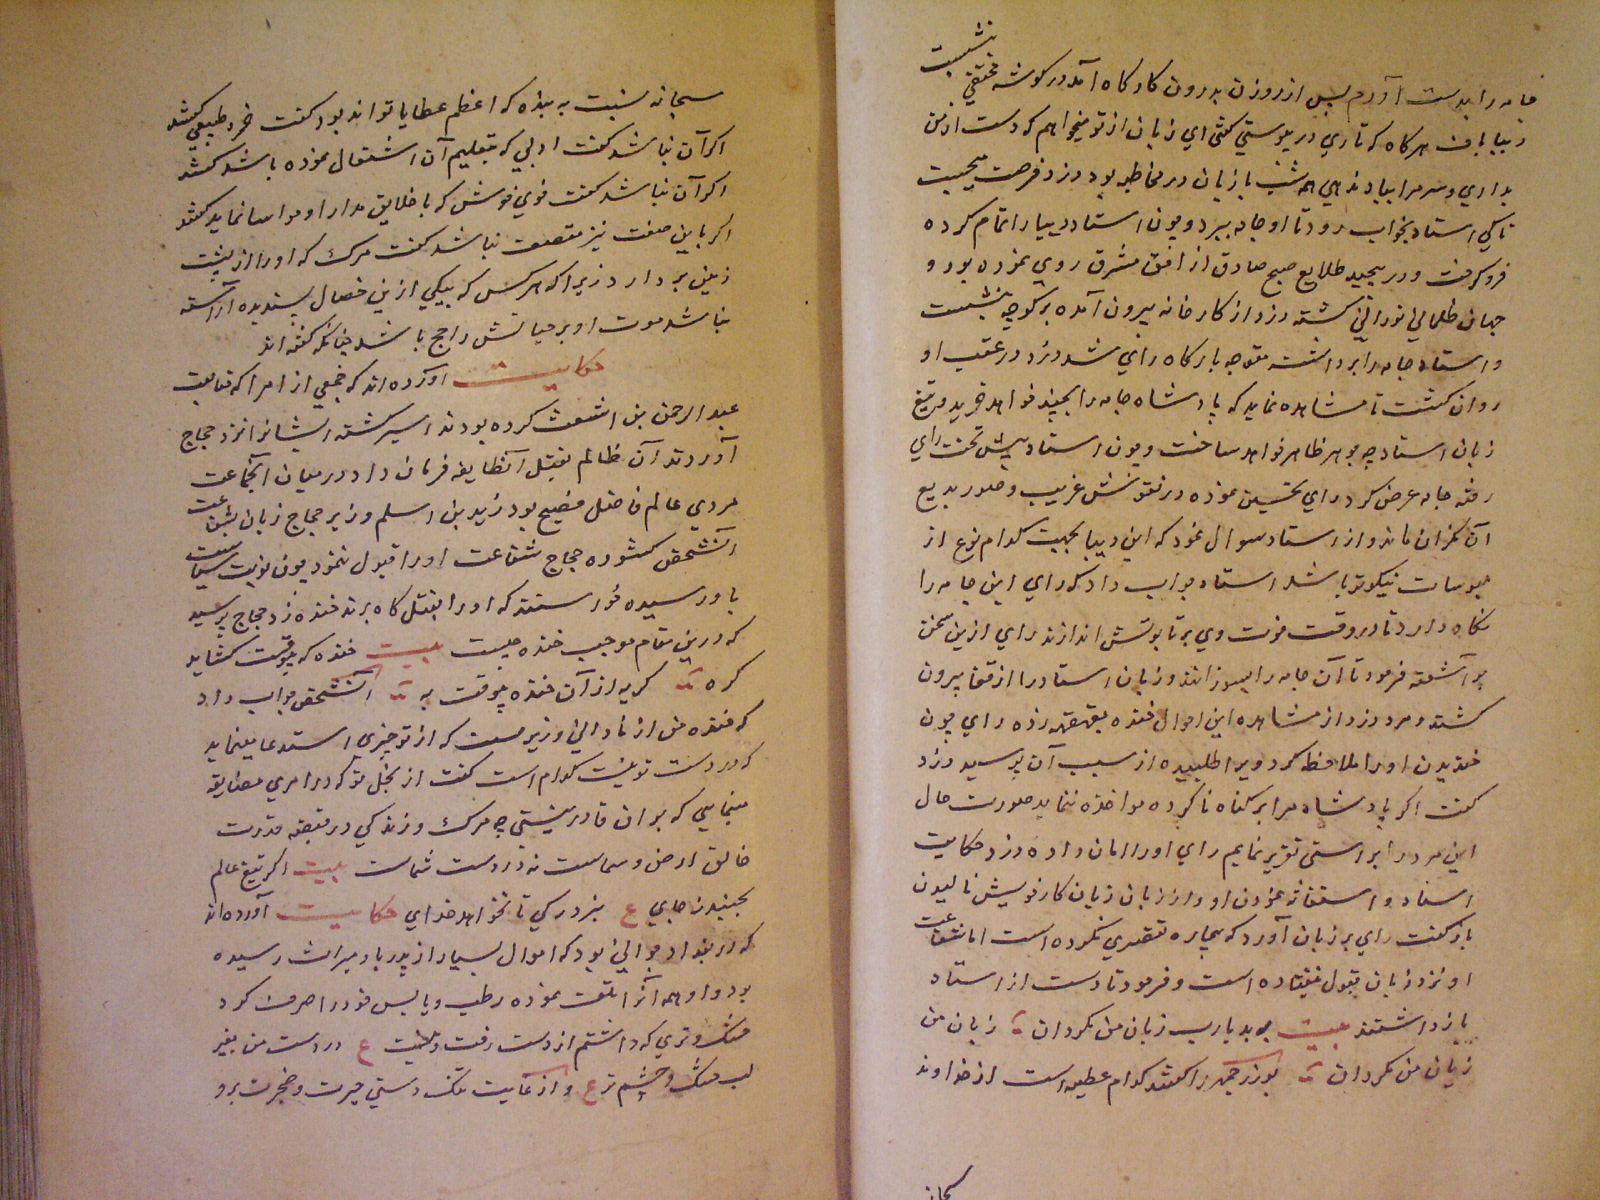 جامه را بدست آورم پس از روزن بدرون کارکاه آمد در کوشه مختفی بنشست
دیبا باف هر کاه که تاری در پیوستی کفتی ای زبان از تو میخواهم که دست از من
بداری و سر مرا بباد ندهی همه شب با زبان در مخاطبه بود دزد فرصت میجست
تا کی استاد بخواب رود تا او جامه ببرد و چون استاد دیبا را تمام کرده
فرو کرفت و در پیچید طلایع صبح صادق از افق مشرق روی نموده بود و
جهان ظلمانی نورانی کشته دزد از کارخانه بیرون آمده بر کوچه بنشست
و استاد جامه را برداشت متوجه بارکاه رای شد دزد در عقب او
روان کشت تا مشاهده نماید که پادشاه جامه را بچند خواهد خرید و تیغ
زبان استاد چه جوهر ظاهر خواهد ساخت و چون استاد پیش تخت رای
رفته جامه عرض کرد رای تحسین نموده در نقوش غریب و صور بدیع
آن نکران ماند و از استاد سوال نمود که این دیبا بجهت کدام نوع از
ملبوسات نیکوتر باشد استاد جواب داد که رای این جامه را
نکاه دارد تا در وقت فوت وی بر تابوتش اندازند رای ازین سخن
بر آشفته فرمود تا آن جامه را بسوزانند و زبان استاد را از قفا بیرون
کشند و مرد دزد از مشاهده این احوال خنده بقهقهه زده رای چون
خندیدن او را ملاحظه کرد ویرا طلبیده از سبب آن پرسید دزد
کفت اکر پادشاه مرا بر کناه ناکرده مواخذه ننماید صورت حال
این مرد را براستی تقریر نمایم رای او را امان داده دزد حکایت
استاد و استغاثه نمودن او را از زبان زیان کار خویش تا لیدن
باز کفت رای بر زبان آورد که بیچاره تقصیری نکرده است اما شفاعت
او نزد زبان قبول نیفتاده است و فرمود تا دست از استاد
باز داشتند بیت به بد یارب زبان من مکردان زبان من
زیان من مکردان بوزرجمهر را کفتند کدام عطیه است از خداوند
سبحانه
سبحانه نسبت به بنده که اعظم عطایا تواند بود کفت خرد طبیعی کفتند
اکر آن نباشد کفت ادبی که بتعلیم آن اشتغال نموده باشد کفتند
اکر آن نباشد کفت خوی خوش که با خلایق مدارا و مواسا نماید کفتند
اکر باین صفت نیز متصف نباشد کفت مرک که او را از پشت
زمین بردارد زیرا که هر کس که بیکی ازین خصال پسندیده آراسته
نباشد موت او بر حیاتش راجح باشد چنانکه کفته اند
حکایت آورده اند که جمعی از امرا که متابعت
عبد الرحمن بن اشعث کرده بودند اسیر کشته ایشانرا نزد حجاج
آوردند آن ظالم بقتل آنطایفه فرمان داد در میان آنجماعت
مردی عالم فاضل فصیح بود زید بن اسلم وزیر حجاج زبان بشفاعت
آنشخص کشوده حجاج شفاعت او را قبول ننمود چون نوبت سیاست
باو رسیده خواستند که او را بقتلکاه برند خنده زد حجاج پرسید
که درین مقام موجب خنده چیست بیت خنده که بیوقت کشاید
کره کریه از آن خنده بیوقت به آنشخص جواب داد
که خنده من از نادانی وزیرست که از تو چیزی استدعا مینماید
که در دست تو نیست کدام است کفت از بخل تو که در امری مضایقه
مینمایی که بران قادر نیستی چه مرک و زندکی در قبضه قدرت
خالق ارض و سماست نه در دست شماست بیت اکر تیغ عالم
بجنبد ز جای ع نبرد رکی تا نخواهد خدای حکایت آورده اند
که در بغداد جوانی بود که اموال بسیار از پدر باو میراث رسیده
بود و او همه آنرا تلف نموده رطب و یابس خود را صرف کرد
خشک و تری که داشتم از دست رفت ع در دست من بغیر
لب خشک و چشم تر ع و از غایت تنک دستی حیرت و ضجرت برو